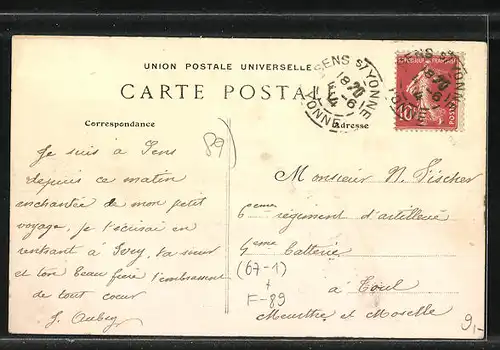 UNION POSTALE UNIVERSELLE
CARTE POSTALE
Correspondance
Adresse
SENS S/ YONNE
18 20
YONNE
SENS S/ YONNE
10
POSTES
89
Je suis à Sens
depuis ce matin
enchantée de mon petit
voyage, je t'écrirai en
rentrant à Ivry, ta sœur
et ton beau frère t'embrassent
de tout cœur
J. Aubry
Monsieur N. Fischer
6eme régiment d'artillerie
4eme Batterie
(67-1)
+
F-89
à Toul
Meurthe et Moselle
9,-